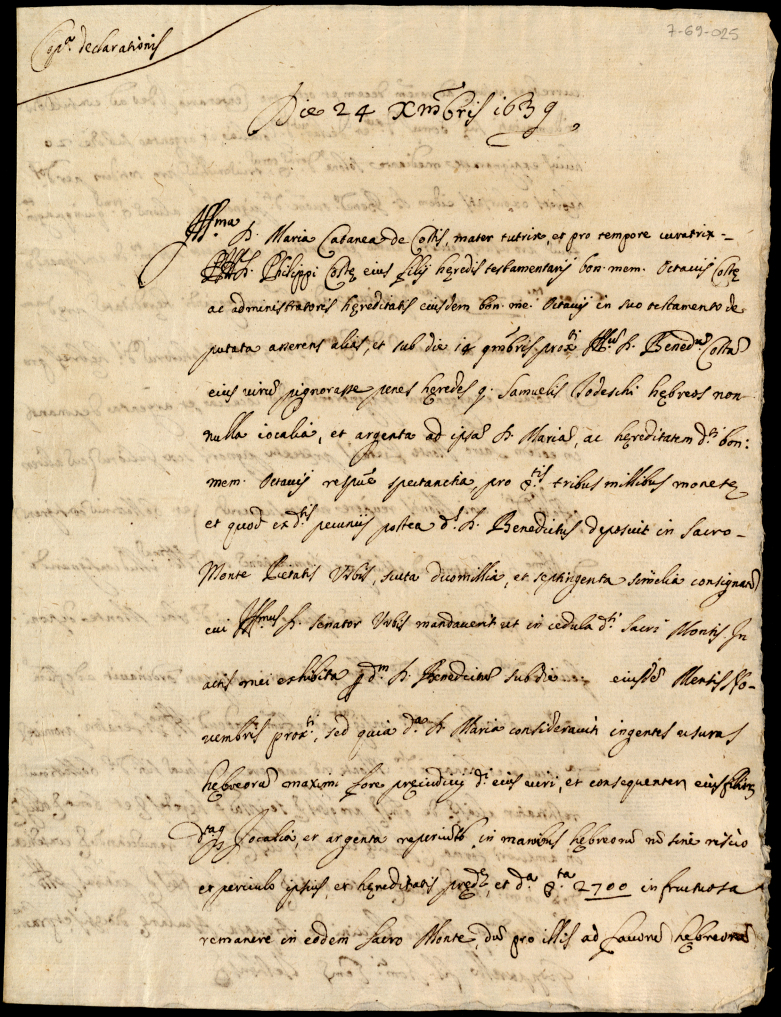 7-69-025
Cop.ᵃ declarationis
Die 24 Xmbris 1639
Ill.ma D. Maria Catanea de Costis, mater tutrix, et pro tempore curatrix =
D. Philippi Costę eius filij hęredis testamentarij bon: mem. Octavij Costę
ac administratoris hęreditatis eiusdem bon: me: Octavij in suo testamento de
putata asserens alias, et sub die 14 9mbris prox.ᵗⁱ Ill.ᵘˢ D. Bened.ᵘˢ Costa
eius virũ pignorasse penes hęredes q. Samuelis Todeschi hebręos non
nulla iocalia, et argenta ad ipsã D. Mariã, ac hęreditatem d.ⁱ bon:
mem. Octavij respuẽ spectantia, pro ▽.ᵗⁱˢ tribus millibus monetę
et quod ex d.ᵗⁱˢ pecunijs postea d.ˢ D. Benedictus deposuit in Sacro =
Monte Pietatis Urbis, scuta duomillia, et septingenta similia consignan̄
cui Ill.mus D. senator Urbis mandaverit ut in cedula d.ⁱ Sacri Montis. In
actis mei exhibita p d.ᵐ D. Benedictũ sub die eiusdẽ Mensis No=
vembris prox.ᵗⁱ, sed quia d.ᵃ D. Maria consideravit ingentes usuras
hębreorũ maximi fore pręiudicij d.ⁱ eius viri, et consequenter eius filiorũ
iocalia, et argenta reperiunt̃ in manibus hebreorũ nõ sine risicio
et periculo ipsius, et hęreditatis pręd.ᵉ, et d.ᵃ ▽.ᵗᵃ 2700 infructuosa
remanere in eodem Sacro Monte, dũ pro illis ad favorẽ hębreorũ